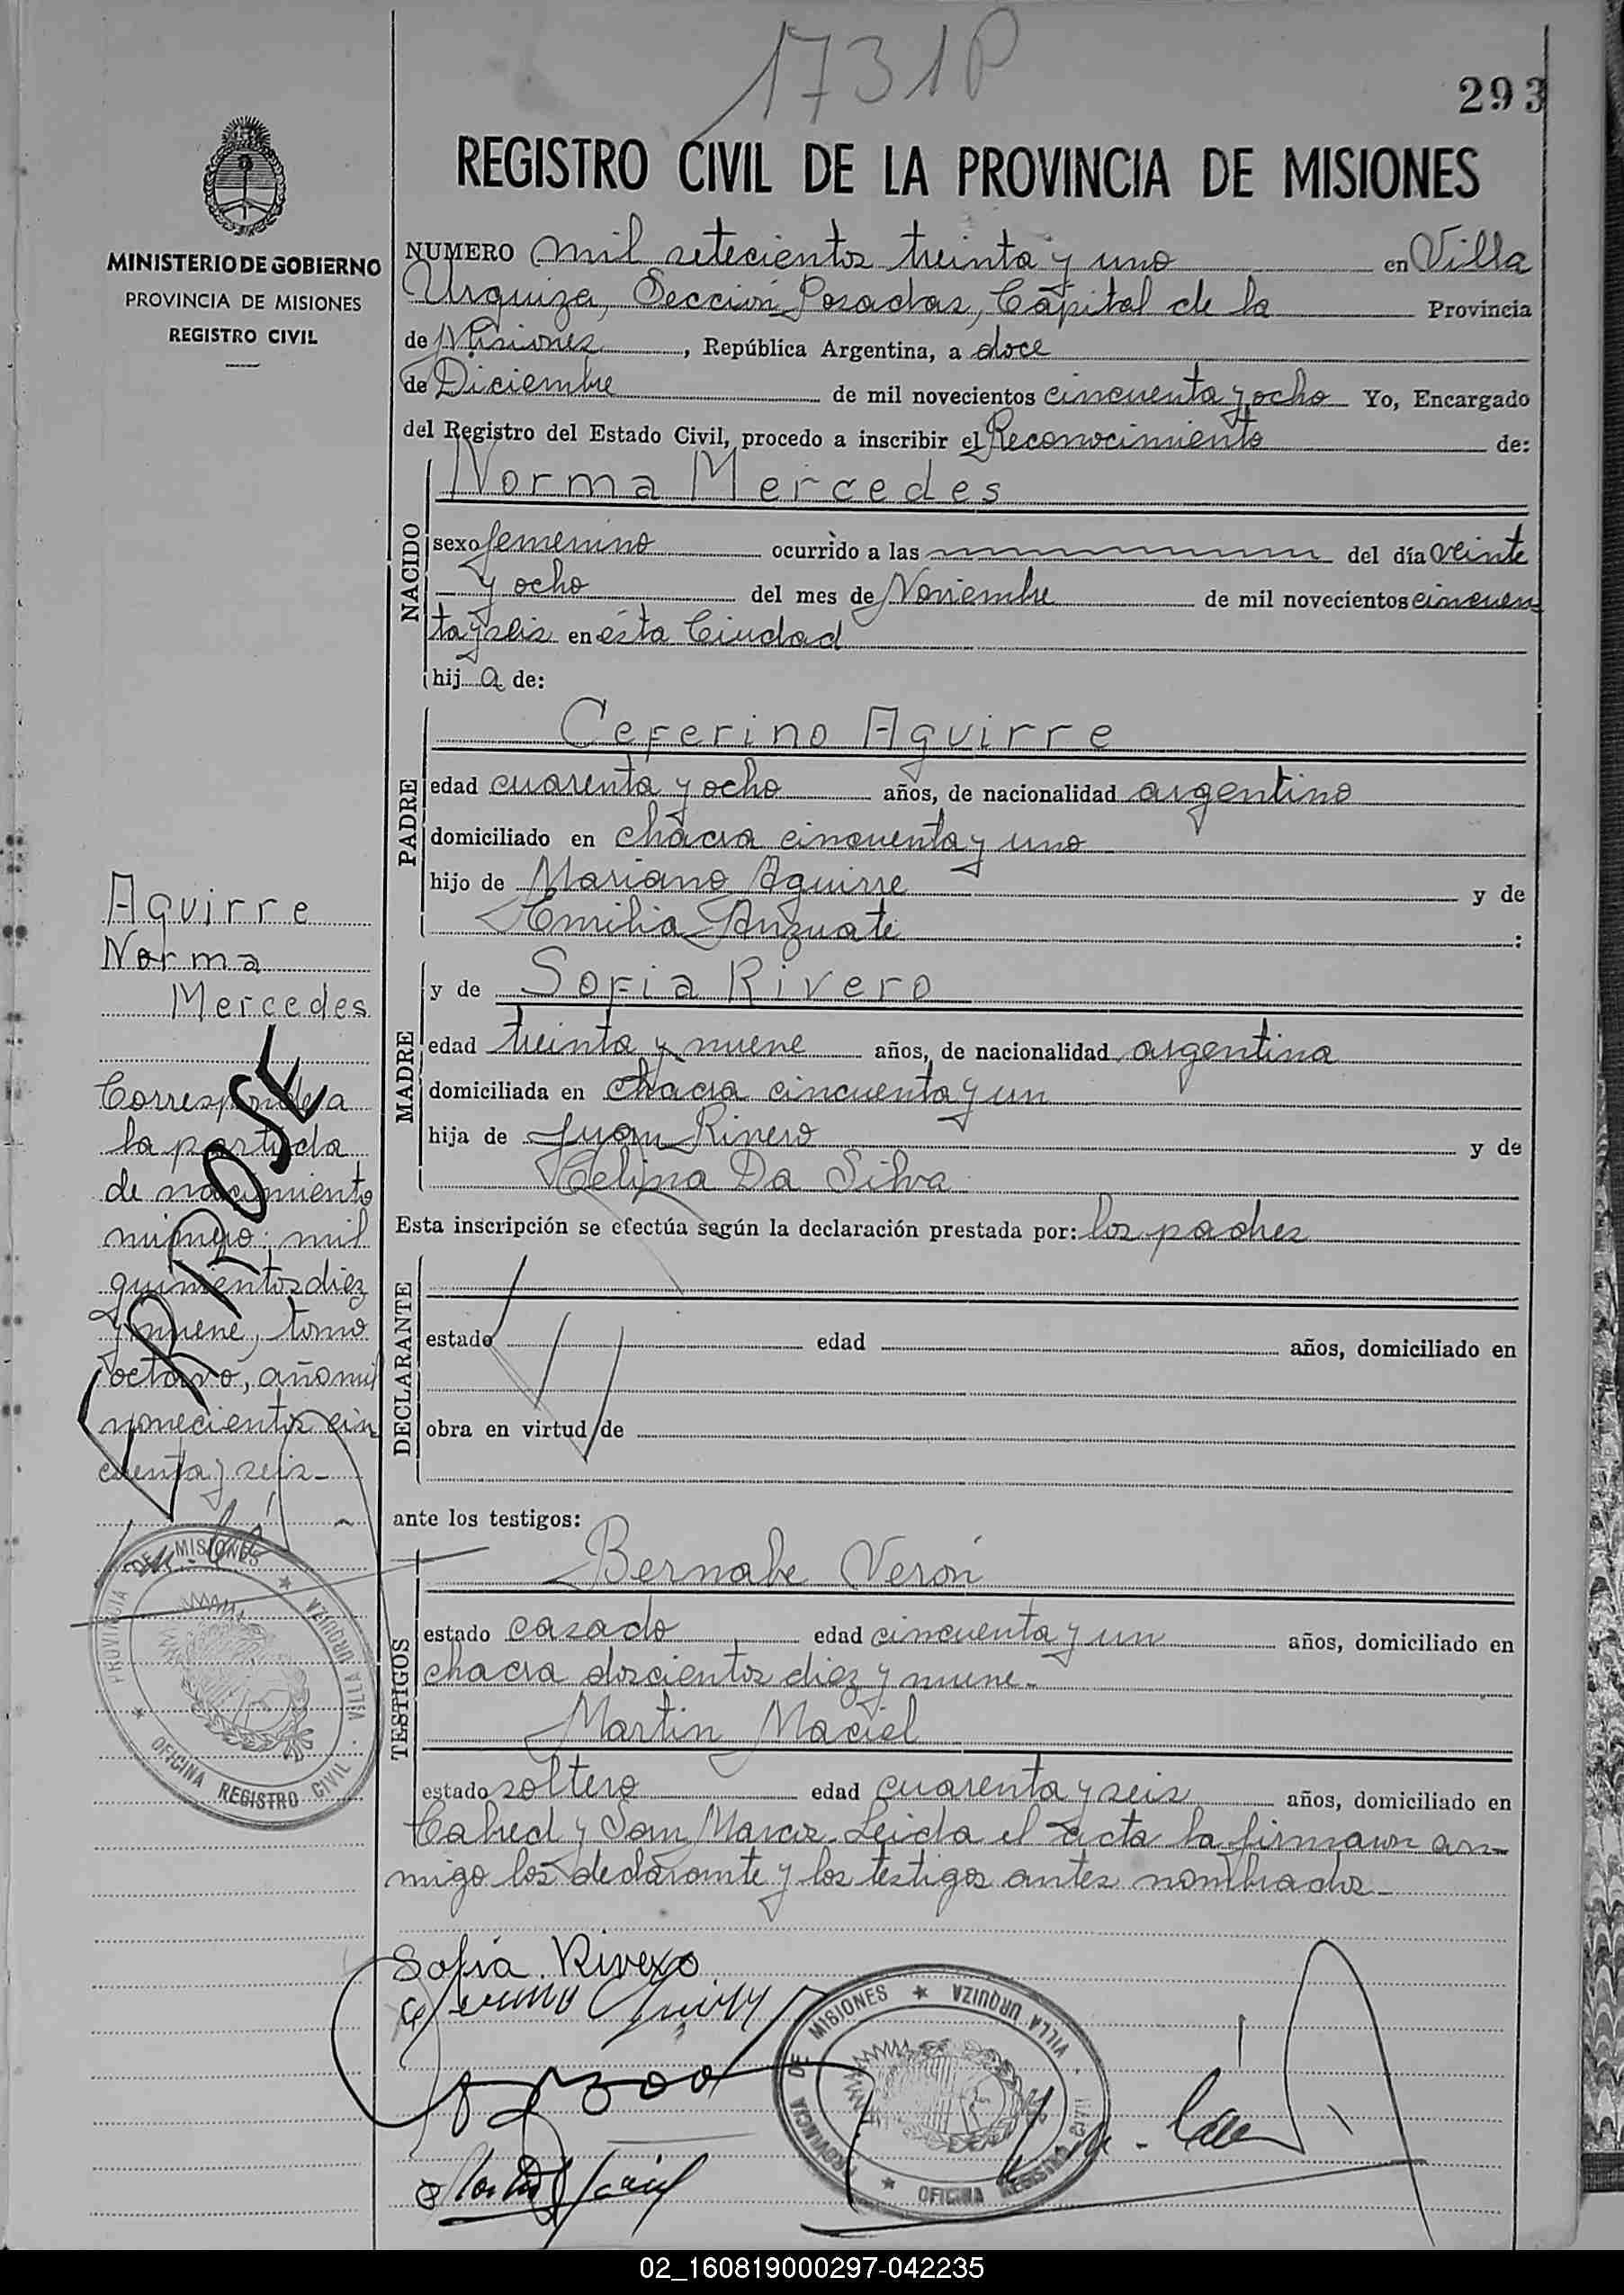 1731P
293
REGISTRO CIVIL DE LA PROVINCIA DE MISIONES
MINISTERIO DE GOBIERNO
PROVINCIA DE MISIONES
REGISTRO CIVIL
NUMERO mil setecientos treinta y uno en Villa
Urquiza, Sección Posadas, Capital de la Provincia
de Misiones, República Argentina, a doce
de Diciembre de mil novecientos cincuenta y ocho Yo, Encargado
del Registro del Estado Civil, procedo a inscribir el Reconocimiento de:
NACIDO
Norma Mercedes
sexo femenino ocurrido a las del día veinte
y ocho del mes de Noviembre de mil novecientos cincuen
ta y seis en ésta Ciudad
hij a de:
PADRE
Ceferino Aguirre
edad cuarenta y ocho años, de nacionalidad argentino
domiciliado en chacra cincuenta y uno
hijo de Mariano Aguirre y de
Emilia Anzuate :
MADRE
y de Sofia Rivero
edad treinta y nueve años, de nacionalidad argentina
domiciliada en chacra cincuenta y un
hija de Juan Rivero y de
Celina Da Silva
Esta inscripción se efectúa según la declaración prestada por: los padres
DECLARANTE
estado edad años, domiciliado en
obra en virtud de
ante los testigos:
TESTIGOS
Bernabe Verón
estado casado edad cincuenta y un años, domiciliado en
chacra doscientos diez y nueve.-
Martin Maciel
estado soltero edad cuarenta y seis años, domiciliado en
Cabred y San Marcos. Leida el acta la firmaron con-
migo los declarante y los testigos antes nombrados.-
Aguirre
Norma
Mercedes
Corresponde a
la partida
de nacimiento
número: mil
quinientos diez
y nueve, tomo
octavo, año mil
novecientos cin
cuenta y seis.-
PROVINCIA DE MISIONES ★ VILLA URQUIZA
★ OFICINA REGISTRO CIVIL
Sofia Rivero
PROVINCIA DE MISIONES ★ VILLA URQUIZA
★ OFICINA REGISTRO CIVIL
02_160819000297-042235